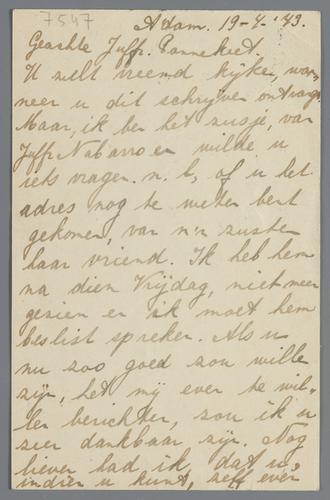 7547
A'dam. 19-4.'43.
Geachte Juffr. Pannekiet.
U zielt vreemd kijken, wan-
neer u dit schrijven ontvangt.
Maar, ik ben het zusje, van
Juffr Nabarro en wilde u
iets vragen. n. l, of u het
adres nog te weten bent
gekomen, van m'n zuster
haar vriend. Ik heb hem
na dien Vrijdag, niet meer
gezien en ik moet hem
beslist spreken. Als u
nu zoo goed zou willen
zijn, het mij even te wil-
len berichten, zou ik u
zeer dankbaar zijn. Nog
liever had ik, dat u,
indien u kunt, zelf even